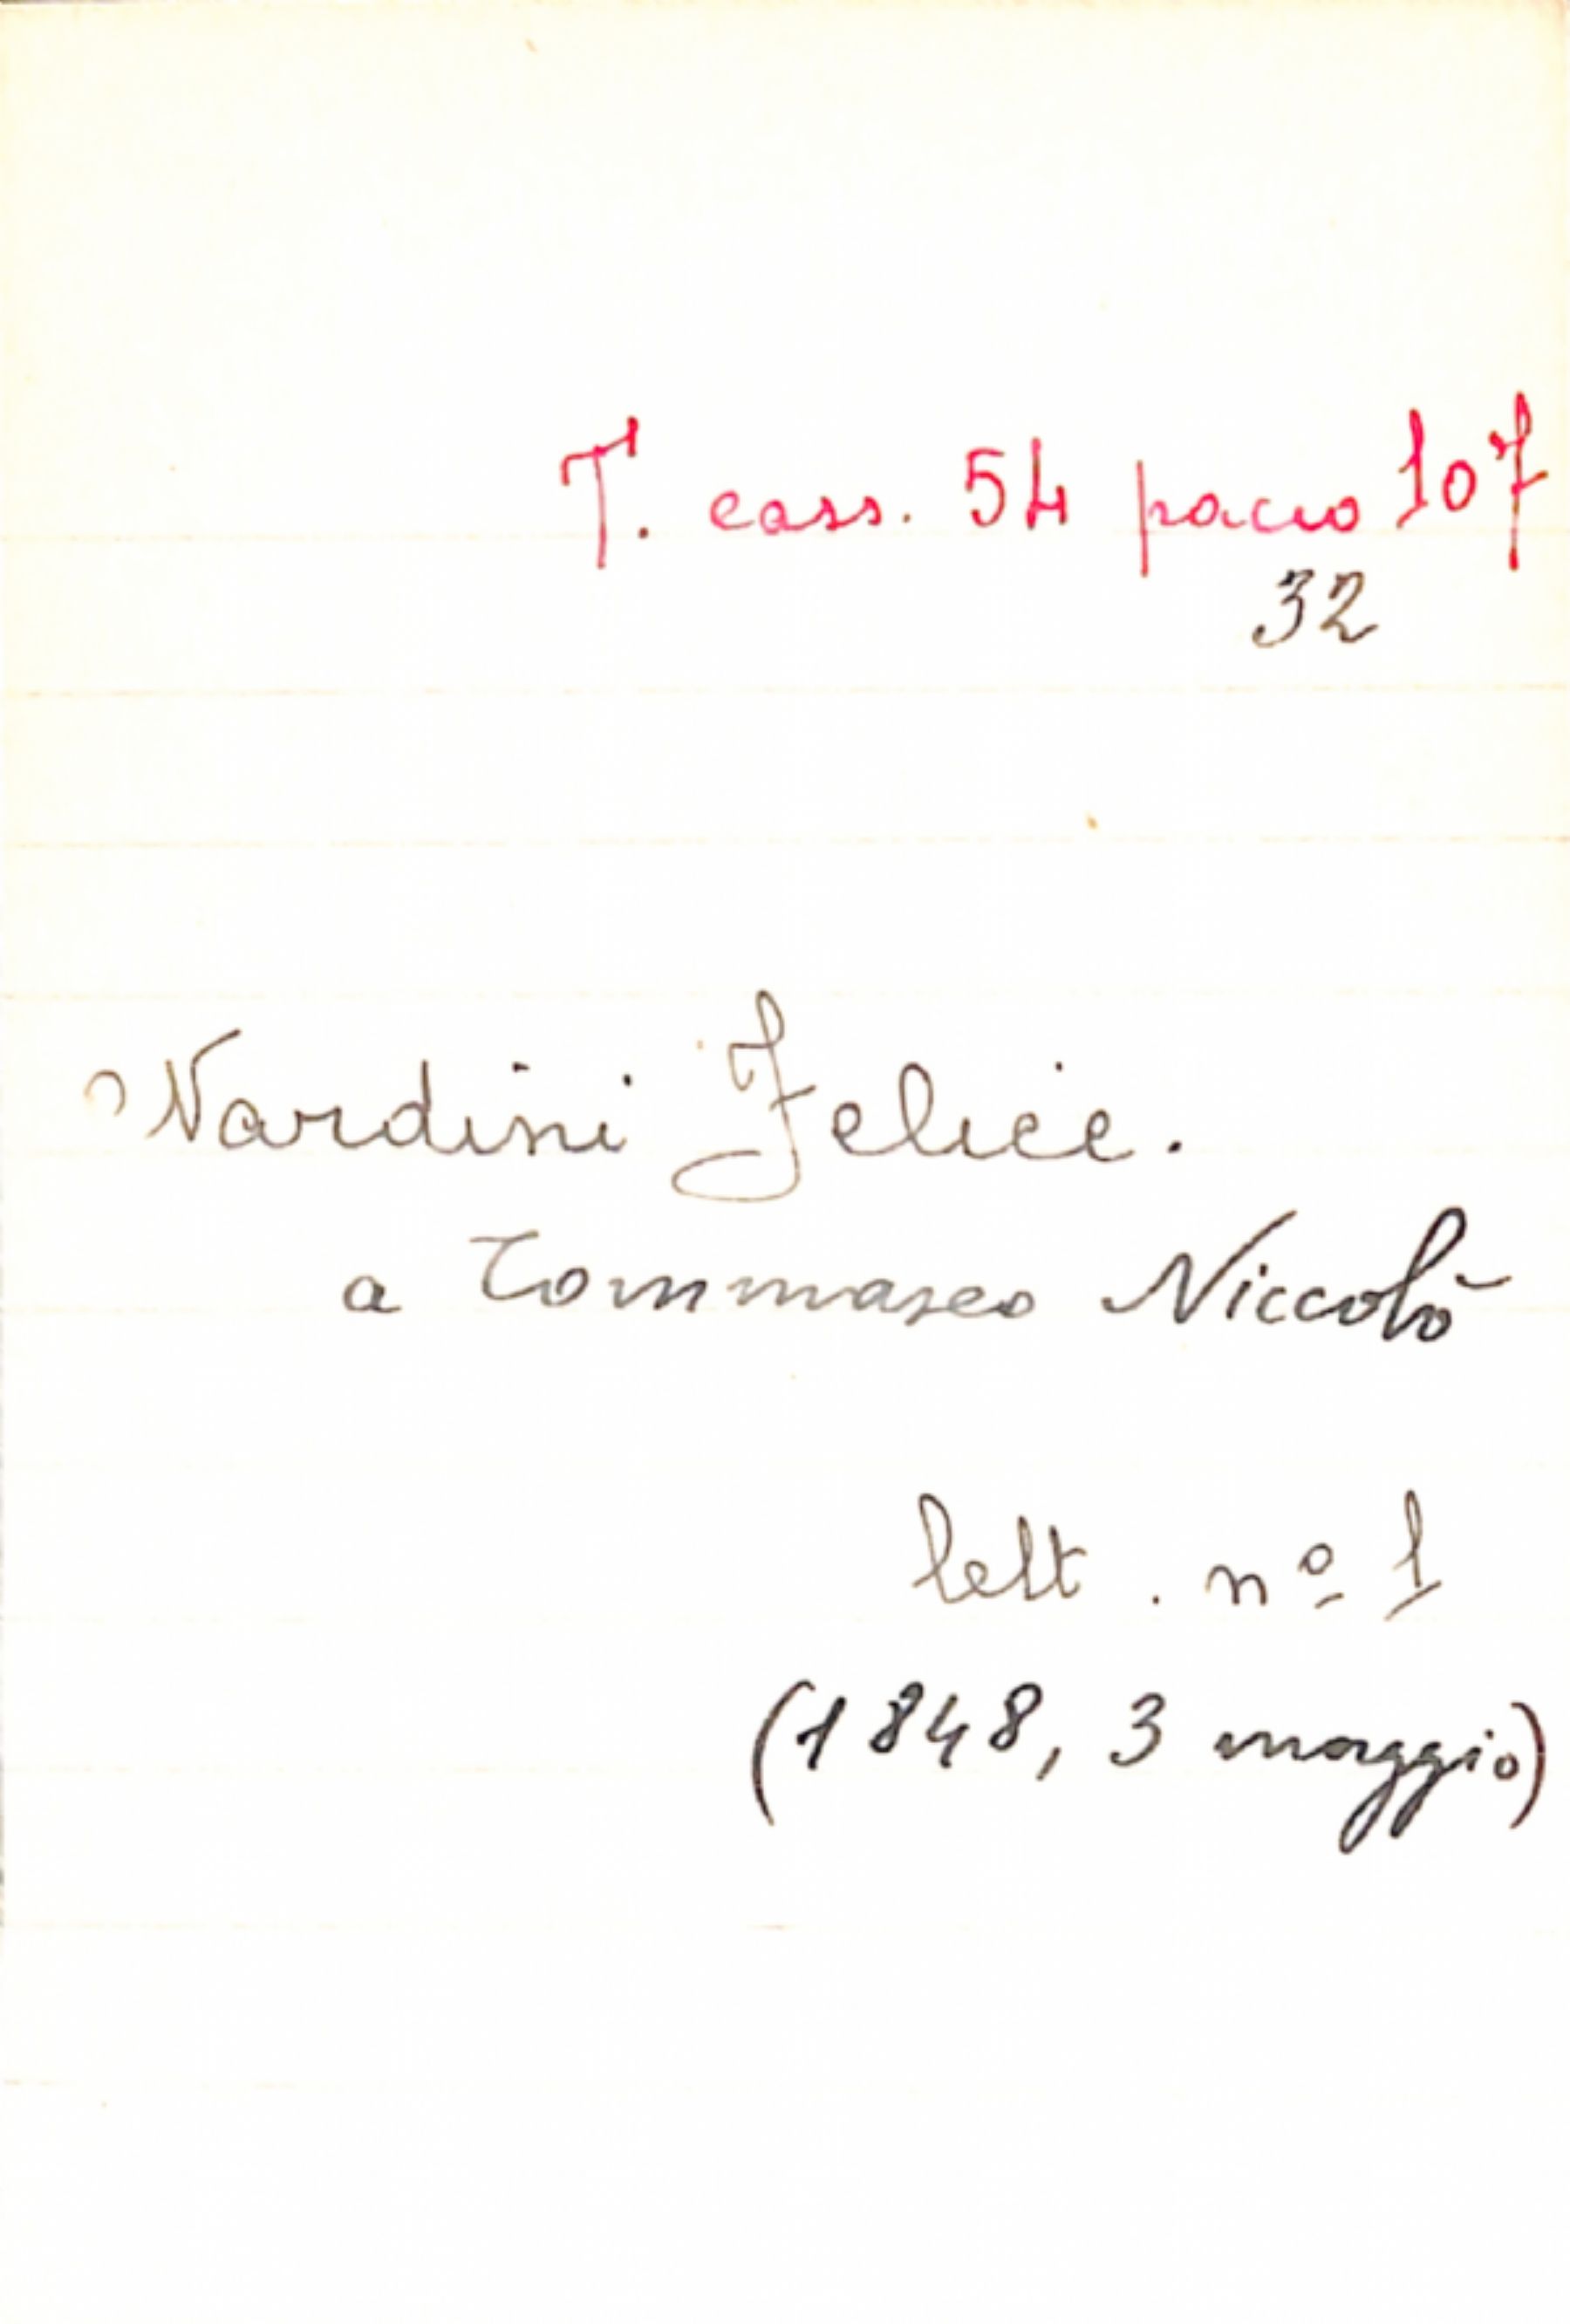 T. cass. 54 pacco 107
32
Nardini Felice.
a Tommaseo Niccolò
lett. nº 1
(1848, 3 maggio)